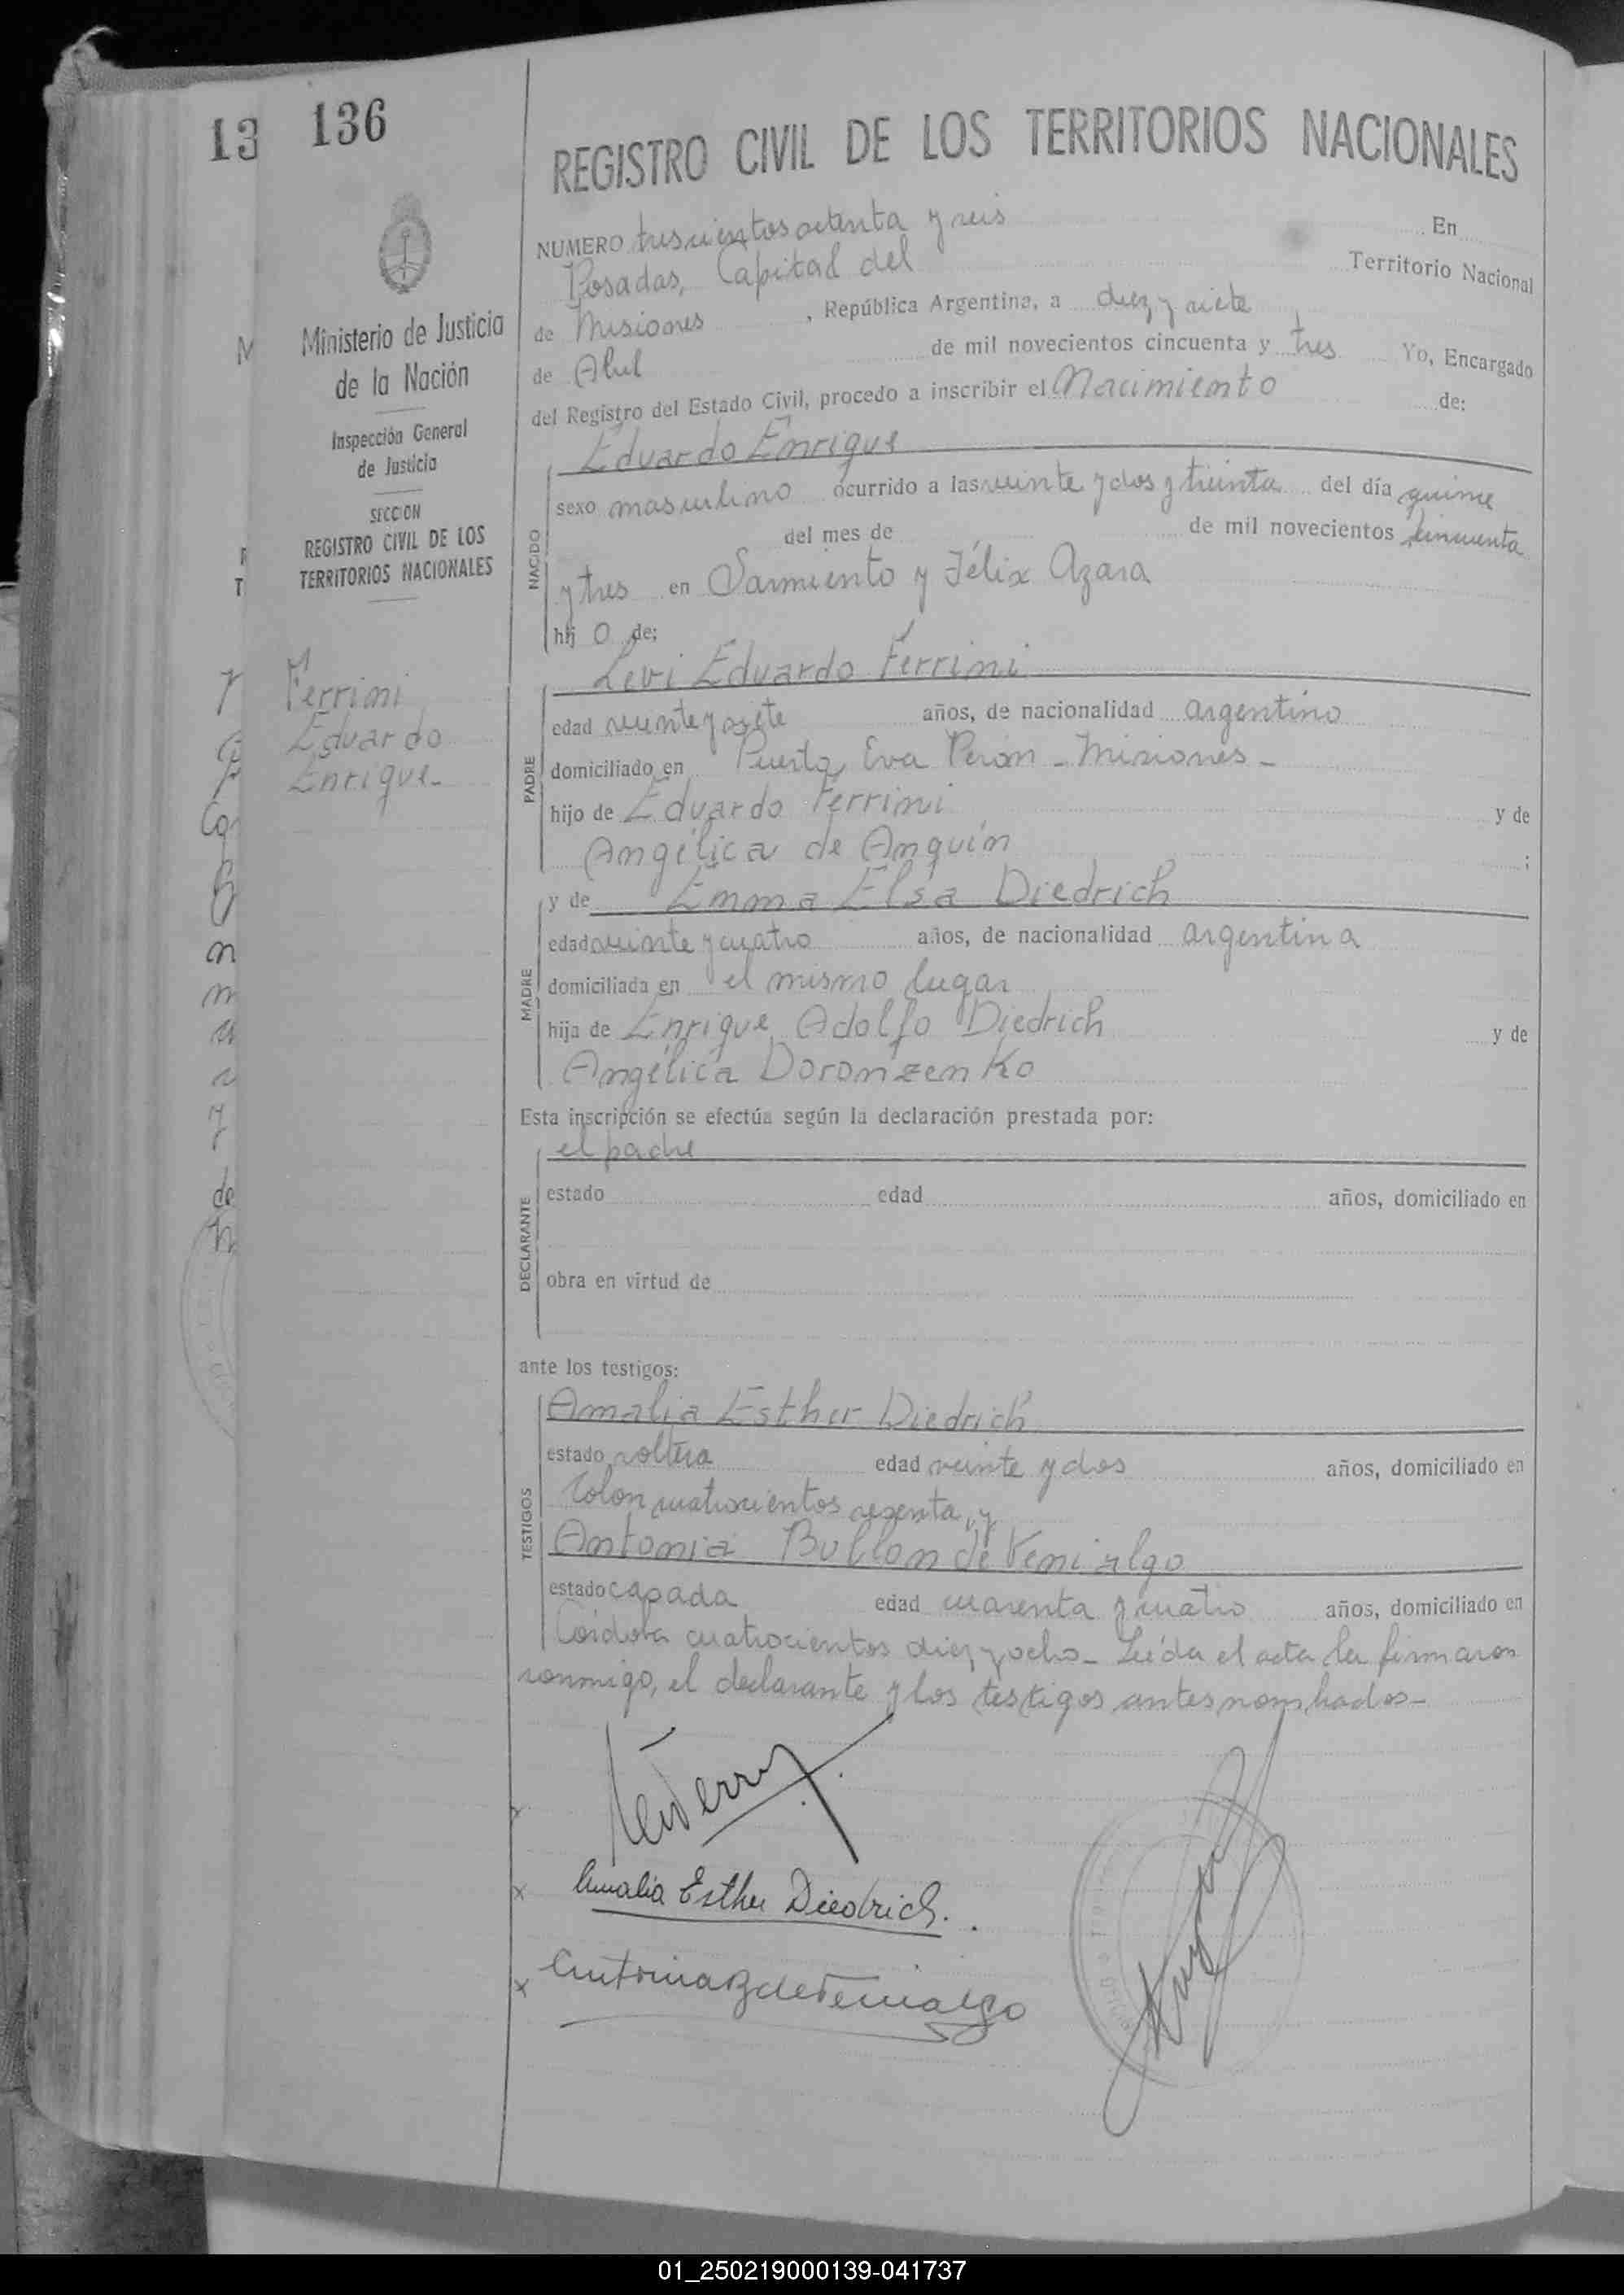 13 136
Ministerio de Justicia
de la Nación
Inspección General
de Justicia
SECCION
REGISTRO CIVIL DE LOS
TERRITORIOS NACIONALES
Ferrini
Eduardo
Enrique-
REGISTRO CIVIL DE LOS TERRITORIOS NACIONALES
NUMERO trescientos ochenta y seis En
Posadas, Capital del Territorio Nacional
de Misiones , República Argentina, a diez y siete
de Abril de mil novecientos cincuenta y tres Yo, Encargado
del Registro del Estado Civil, procedo a inscribir el Nacimiento de:
Eduardo Enrique
NACIDO
sexo masculino ocurrido a las veinte y dos y treinta del día quince
del mes de de mil novecientos cincuenta
y tres en Sarmiento y Félix Azara
hij o de:
Levi Eduardo Ferrini
PADRE
edad veinte y siete años, de nacionalidad argentino
domiciliado en Puerto Eva Perón - Misiones -
hijo de Eduardo Ferrini y de
Angélica de Anquín ;
y de Emma Elsa Diedrich
MADRE
edad veinte y cuatro años, de nacionalidad argentina
domiciliada en el mismo lugar
hija de Enrique Adolfo Diedrich y de
Angélica Doronzenko
Esta inscripción se efectúa según la declaración prestada por:
el padre
DECLARANTE
estado edad años, domiciliado en
obra en virtud de
ante los testigos:
Amalia Esther Diedrich
TESTIGOS
estado soltera edad veinte y dos años, domiciliado en
Colon cuatrocientos sesenta, y
Antonia Bullon de Venialgo
estado casada edad cuarenta y cuatro años, domiciliado en
Córdoba cuatrocientos diez y ocho- Leída el acta la firmaron
conmigo, el declarante y los testigos antes nombrados-
Amalia Esther Diedrich.
Antonia B de Venialgo
01_250219000139-041737